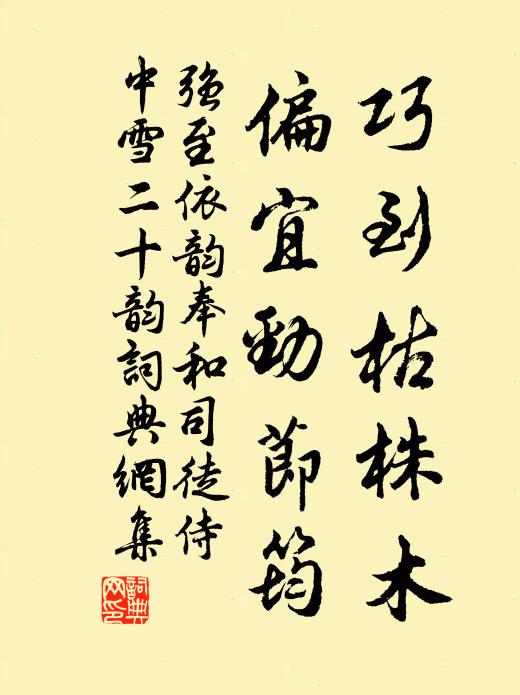 巧到枯株木
偏宜勁節筠
強至依韵奉和司徒侍
中雪二十韵詞典網集